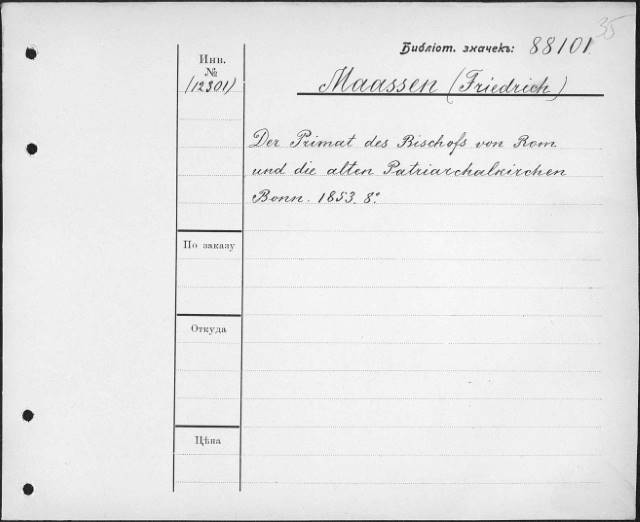 35
Библіот. значекъ: 88101
Инв.
№
(12301)
Maassen (Friedrich)
Der Primat des Bischofs von Rom
und die alten Patriarchalkirchen
Bonn. 1853. 8°.
По заказу
Откуда
Цѣна